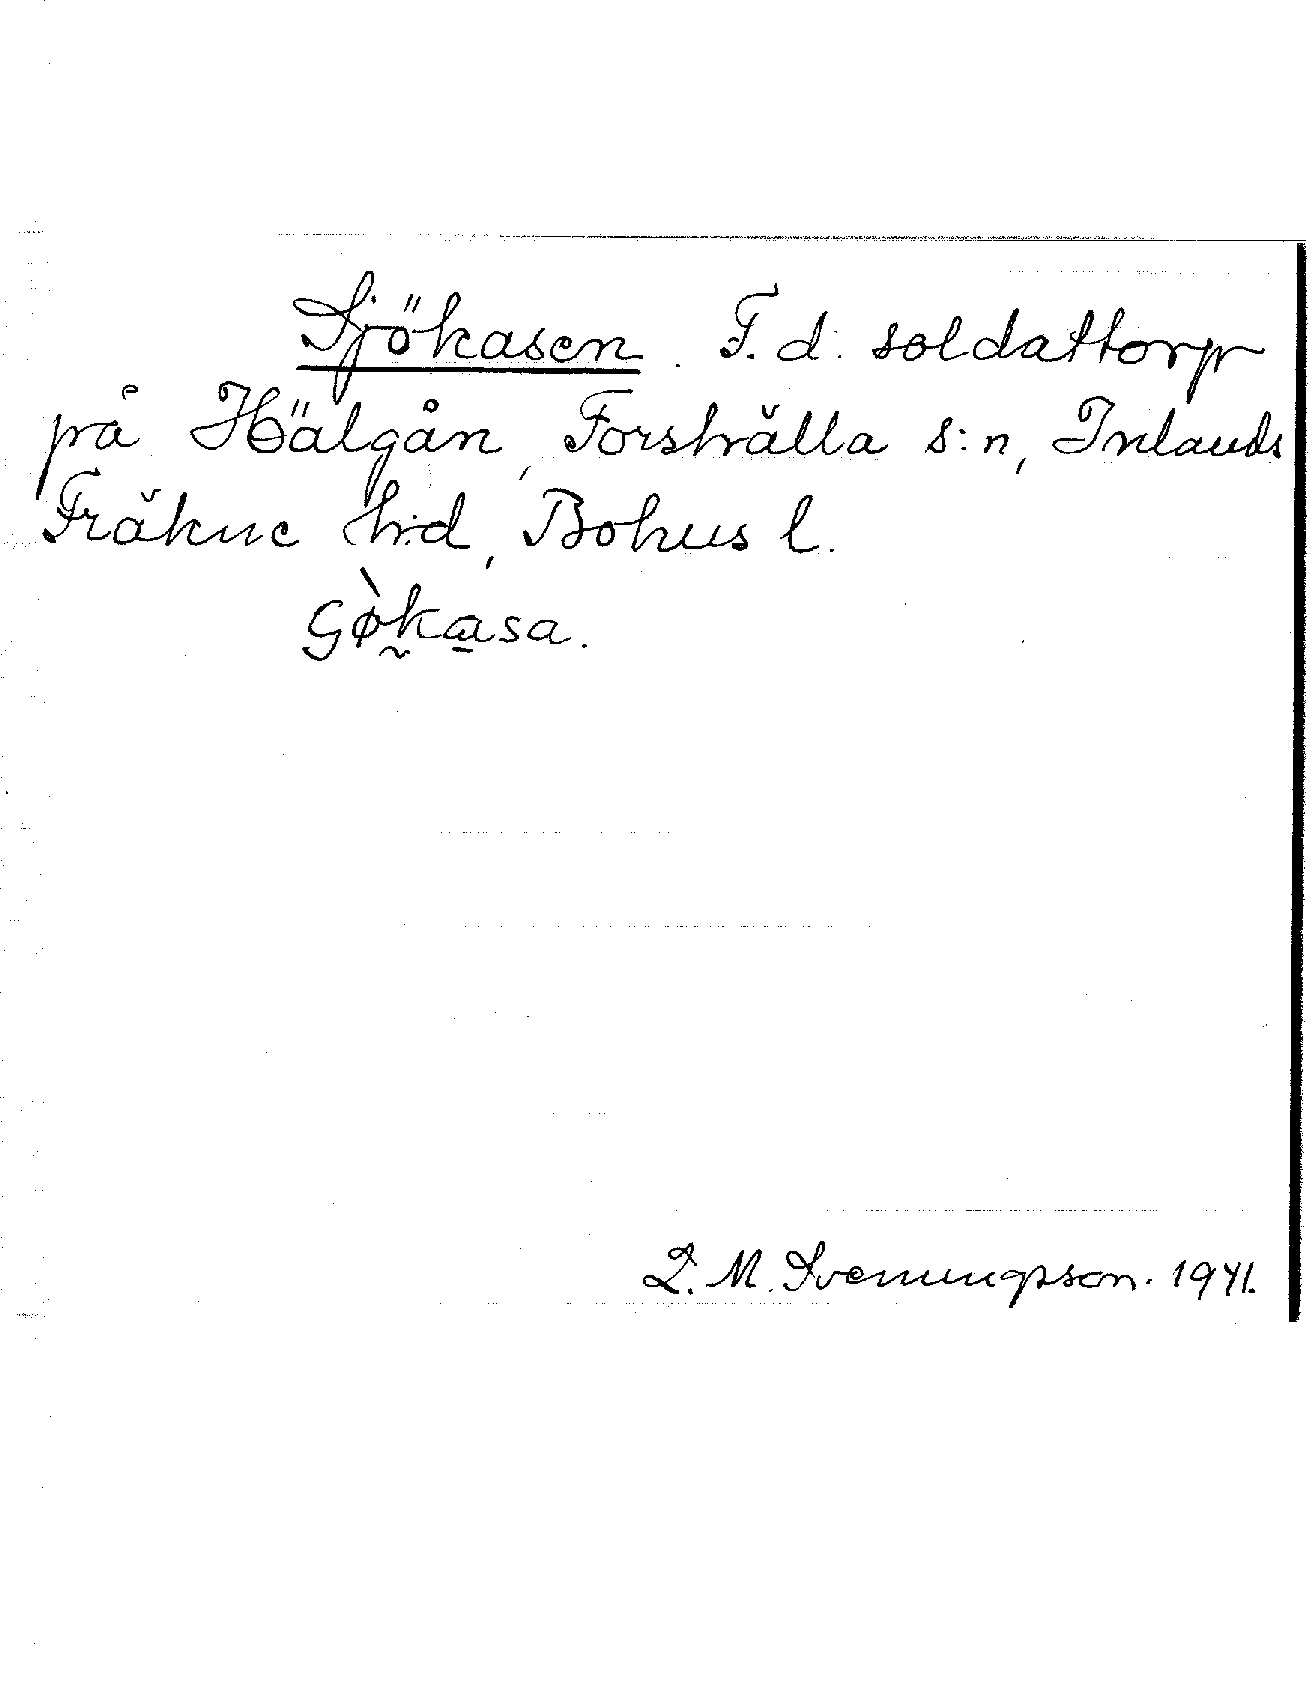 Sjökasen. F. d. soldattorp
på Hälgån, Forshälla s:n, Inlands
Fräkne h:d, Bohus l.
Sø̀kasa.
L. M. Svenungsson. 1941.